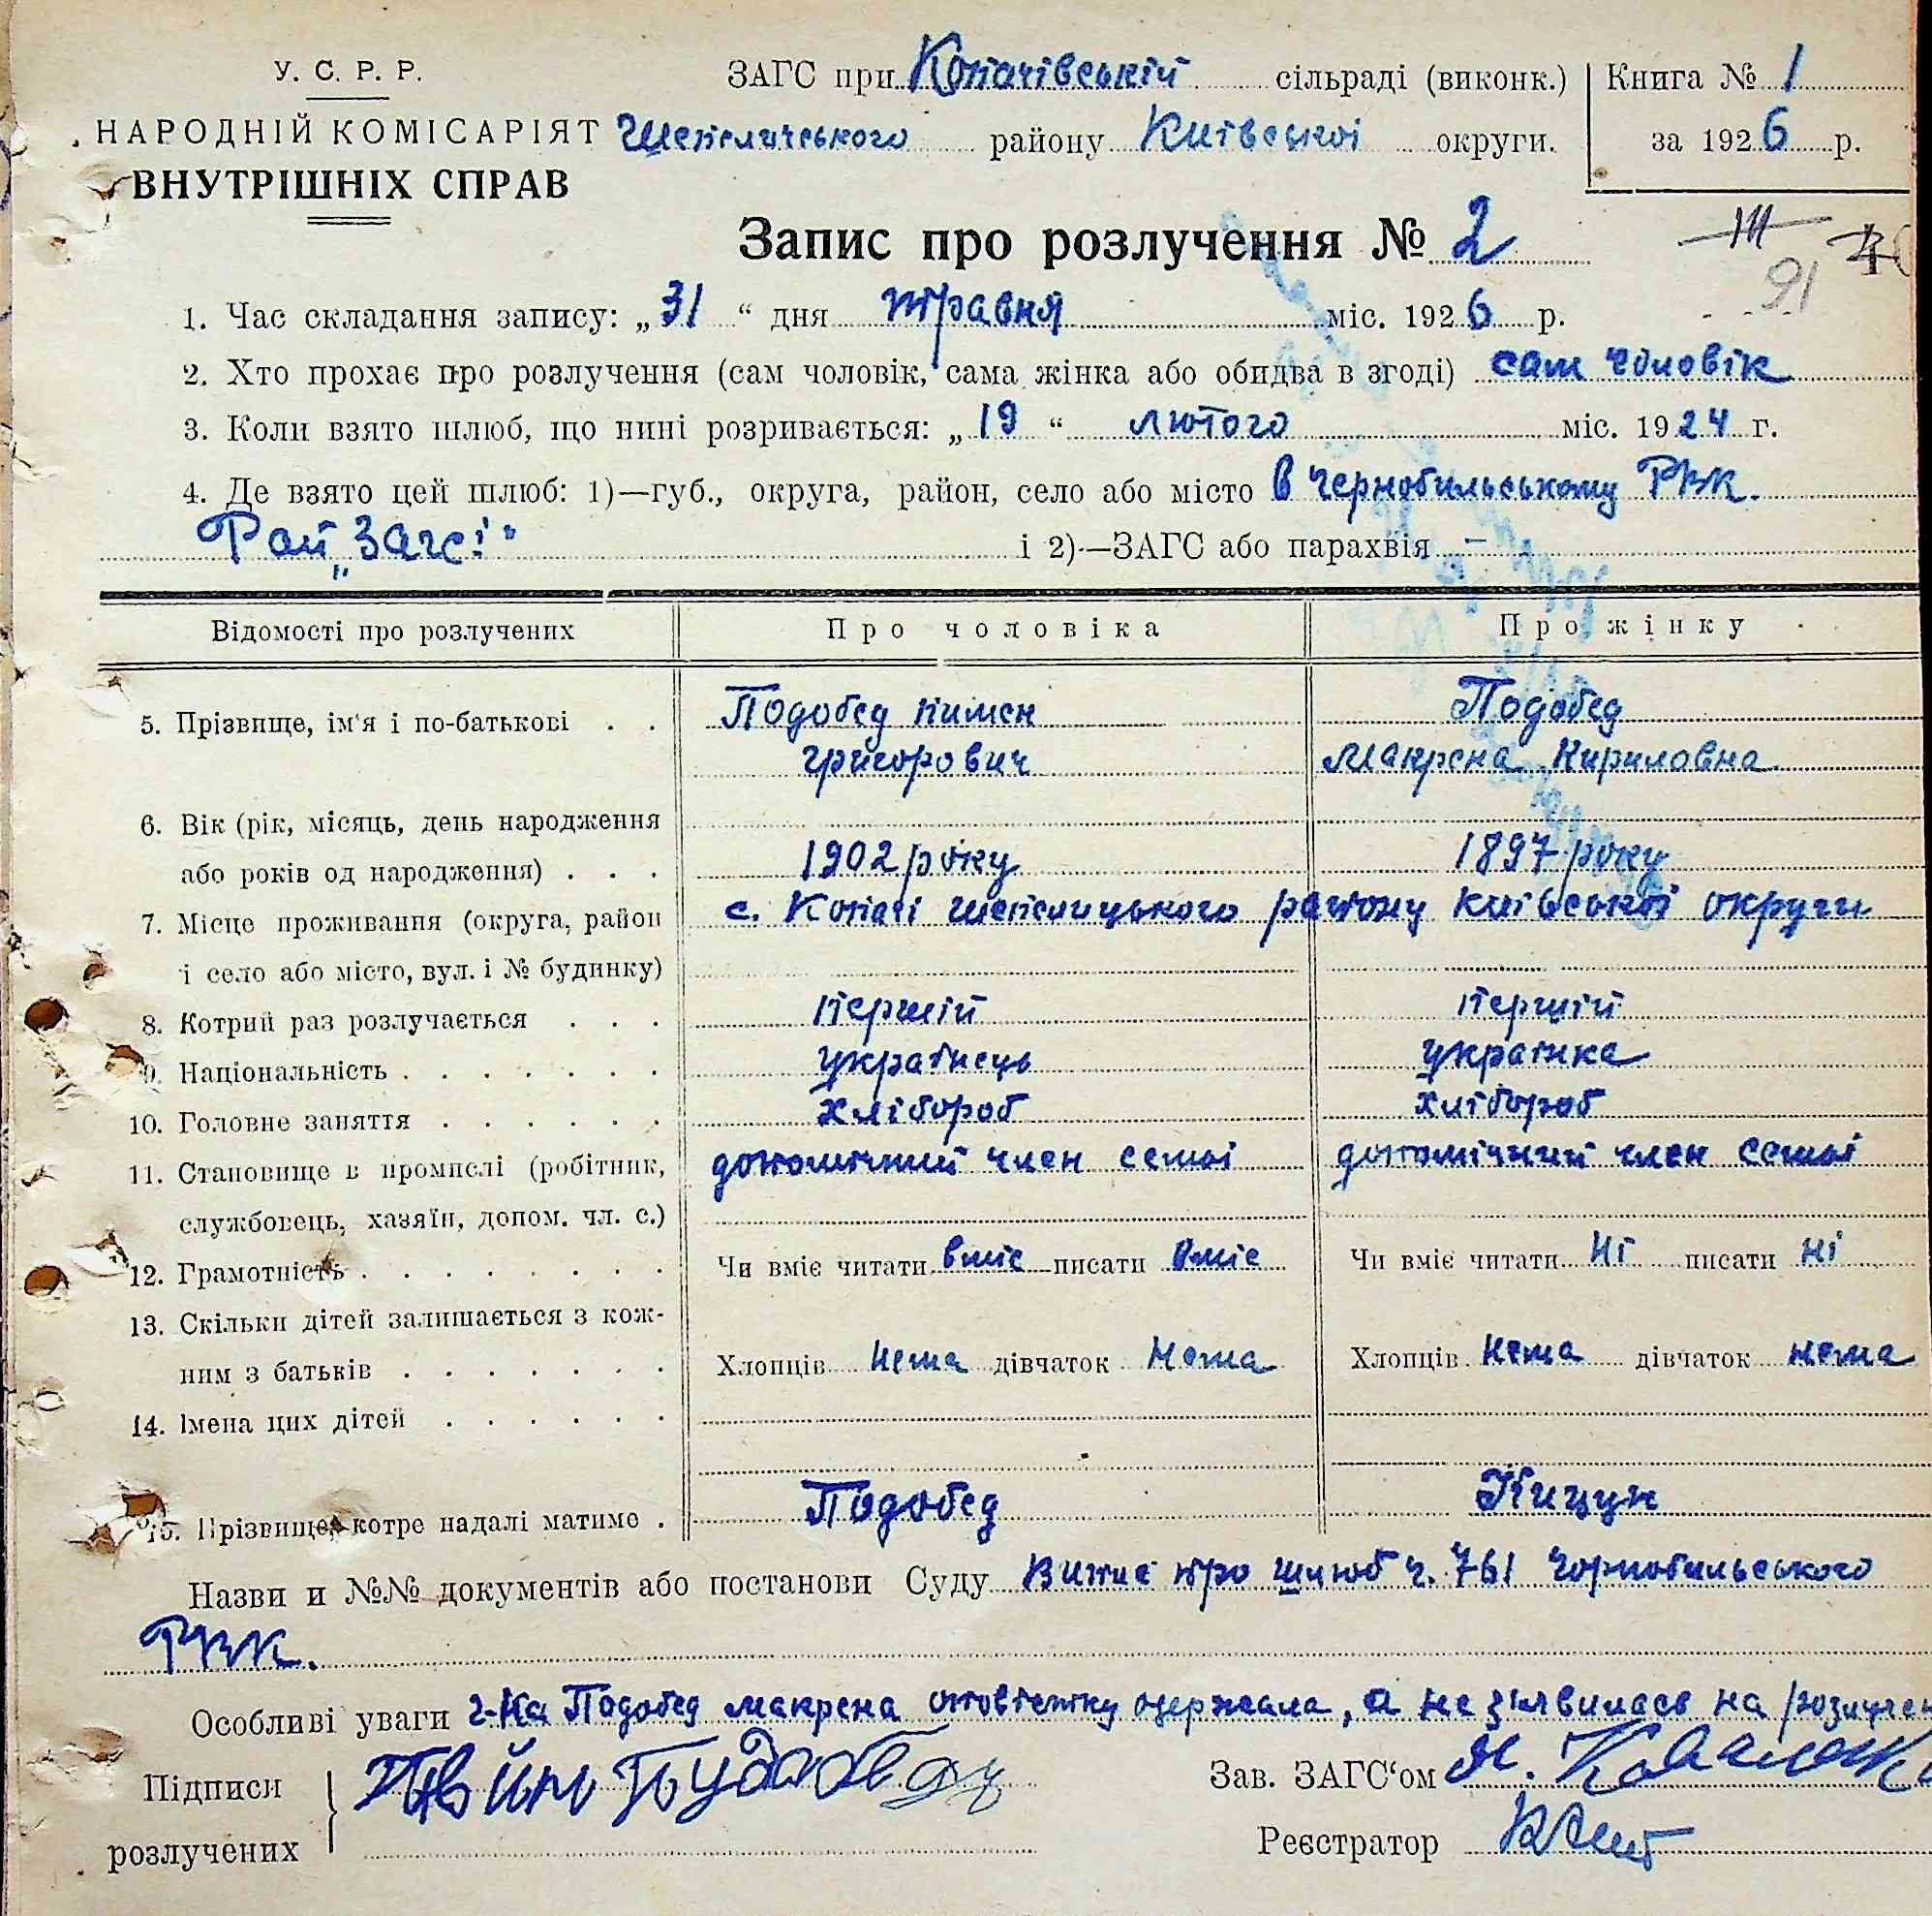 У. С. Р. Р.
НАРОДНІЙ КОМІСАРІЯТ
ВНУТРІШНІХ СПРАВ
ЗАГС при Копачівській сільраді (виконк.)
Шепеличського району Київської округи.
Книга № 1
за 1926 р.
Запис про розлучення № 2
91
1. Час складання запису: „31“ дня травня міс. 1926 р.
2. Хто прохає про розлучення (сам чоловік, сама жінка або обидва в згоді) сам чоловік
3. Коли взято шлюб, що нині розривається: „19“ лютого міс. 1924 г.
4. Де взято цей шлюб: 1)—губ., округа, район, село або місто в Чернобильському РВК.
Рай „Загсі" і 2)—ЗАГС або парахвія —
Відомості про розлучених Про чоловіка Про жінку
5. Прізвище, ім'я і по-батькові . . Подобед Пимен Подобед
Григорович Макрена Кириловна
6. Вік (рік, місяць, день народження
або років од народження) . . . 1902 року 1897 року
7. Місце проживання (округа, район с. Копачі Шепелицького району Київської округи
і село або місто, вул. і № будинку)
8. Котрий раз розлучається . . . перший перший
9. Національність . . . . . . . українець українка
10. Головне заняття . . . . . . хлібороб хлібороб
11. Становище в промислі (робітник, допомічний член семьі допомічний член семьі
службовець, хазяїн, допом. чл. с.)
12. Грамотність . . . . . . . . Чи вміє читати вміє писати вміє Чи вміє читати ні писати ні
13. Скільки дітей залишається з кож-
ним з батьків . . . . . . Хлопців нема дівчаток нема Хлопців нема дівчаток нема
14. Імена цих дітей . . . . . .
15. Прізвище, котре надалі матиме . Подобед Кицун
Назви и №№ документів або постанови Суду Випис про шлюб ч. 761 Чорнобильського
РВК.
Особливі уваги г-ка Подобед Макрена оповістку одержала, а не зʼявилась на розлучен
Підписи
розлучених
Зав. ЗАГС'ом
Реєстратор